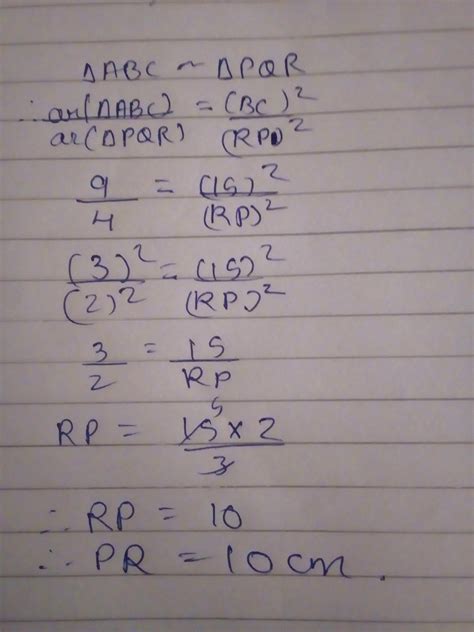 ΔABC ~ ΔPQR
∴ ar(ΔABC) / ar(ΔPQR) = (BC)² / (RP)²
9/4 = (15)² / (RP)²
(3)² / (2)² = (15)² / (RP)²
3/2 = 15/RP
RP = 15 × 2 / 3 5
∴ RP = 10
∴ PR = 10 cm.